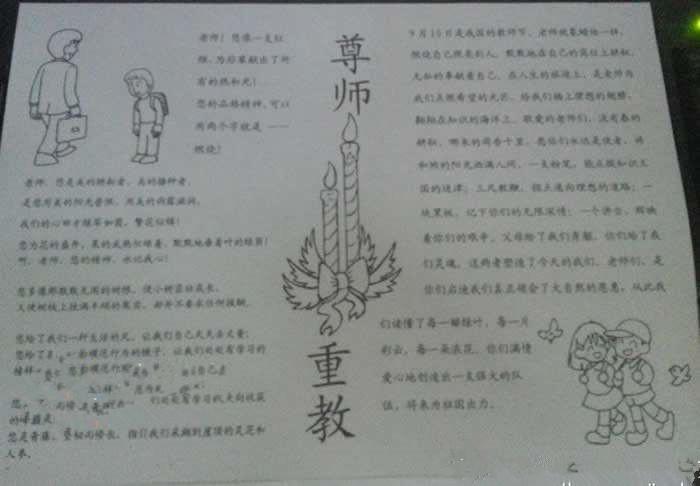 老师！您像一支红
烛，为后辈献出了所
有的热和光！
您的品格精神，可以
用两个字就是——
燃烧！
老师，您是美的耕耘者，美的播种者，
是您用美的阳光普照，用美的雨露滋润，
我们的心田才绿草如茵，繁花似锦！
您为花的盛开，果的成熟忙碌着，默默地垂着叶的绿荫！
啊，老师，您的精神，永记我心！
您多像那默默无闻的树根，使小树茁壮成长，
又使树枝上挂满丰硕的果实，却并不要求任何报酬。
您给了我们一杆生活的尺，让我们自己天天去丈量；
您给了 一面模范行为的镜子，让我们处处有学习的
榜样
们处处有学习的
您是青藤，坚韧而修长，指引我们采撷到崖顶的灵芝和
人参。
尊师
重教
9月10日是我国的教师节，老师就象蜡烛一样，
燃烧自己照亮别人，默默地在自己的岗位上耕耘，
无私的奉献着自己，在人生的旅途上，是老师为
我们点燃希望的光芒，给我们插上理想的翅膀，
翱翔在知识的海洋上，敬爱的老师们，没有春的
耕耘，哪来的荷香十里，愿你们永远是使者，将
和煦的阳光洒满人间，一支粉笔，能点拨知识王
国的迷津；三尺教鞭，指点通向理想的道路；一
块黑板，记下你们的无限深情；一个讲台，辉映
着你们的艰辛，父母给了我们身躯，你们给了我
们灵魂，这两者塑造了今天的我们，老师们，是
你们启迪我们真正领会了大自然的恩惠，从此我
们读懂了每一瓣绿叶，每一片
彩云，每一朵浪花，你们满情
爱心地创造出一支强大的队
伍，将来为祖国出力。